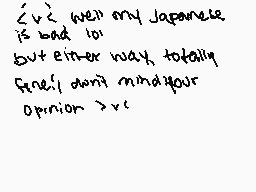 <v< well my Japanese
is bad lol
but either way, totally
fine! I don't mind your
opinion >v<